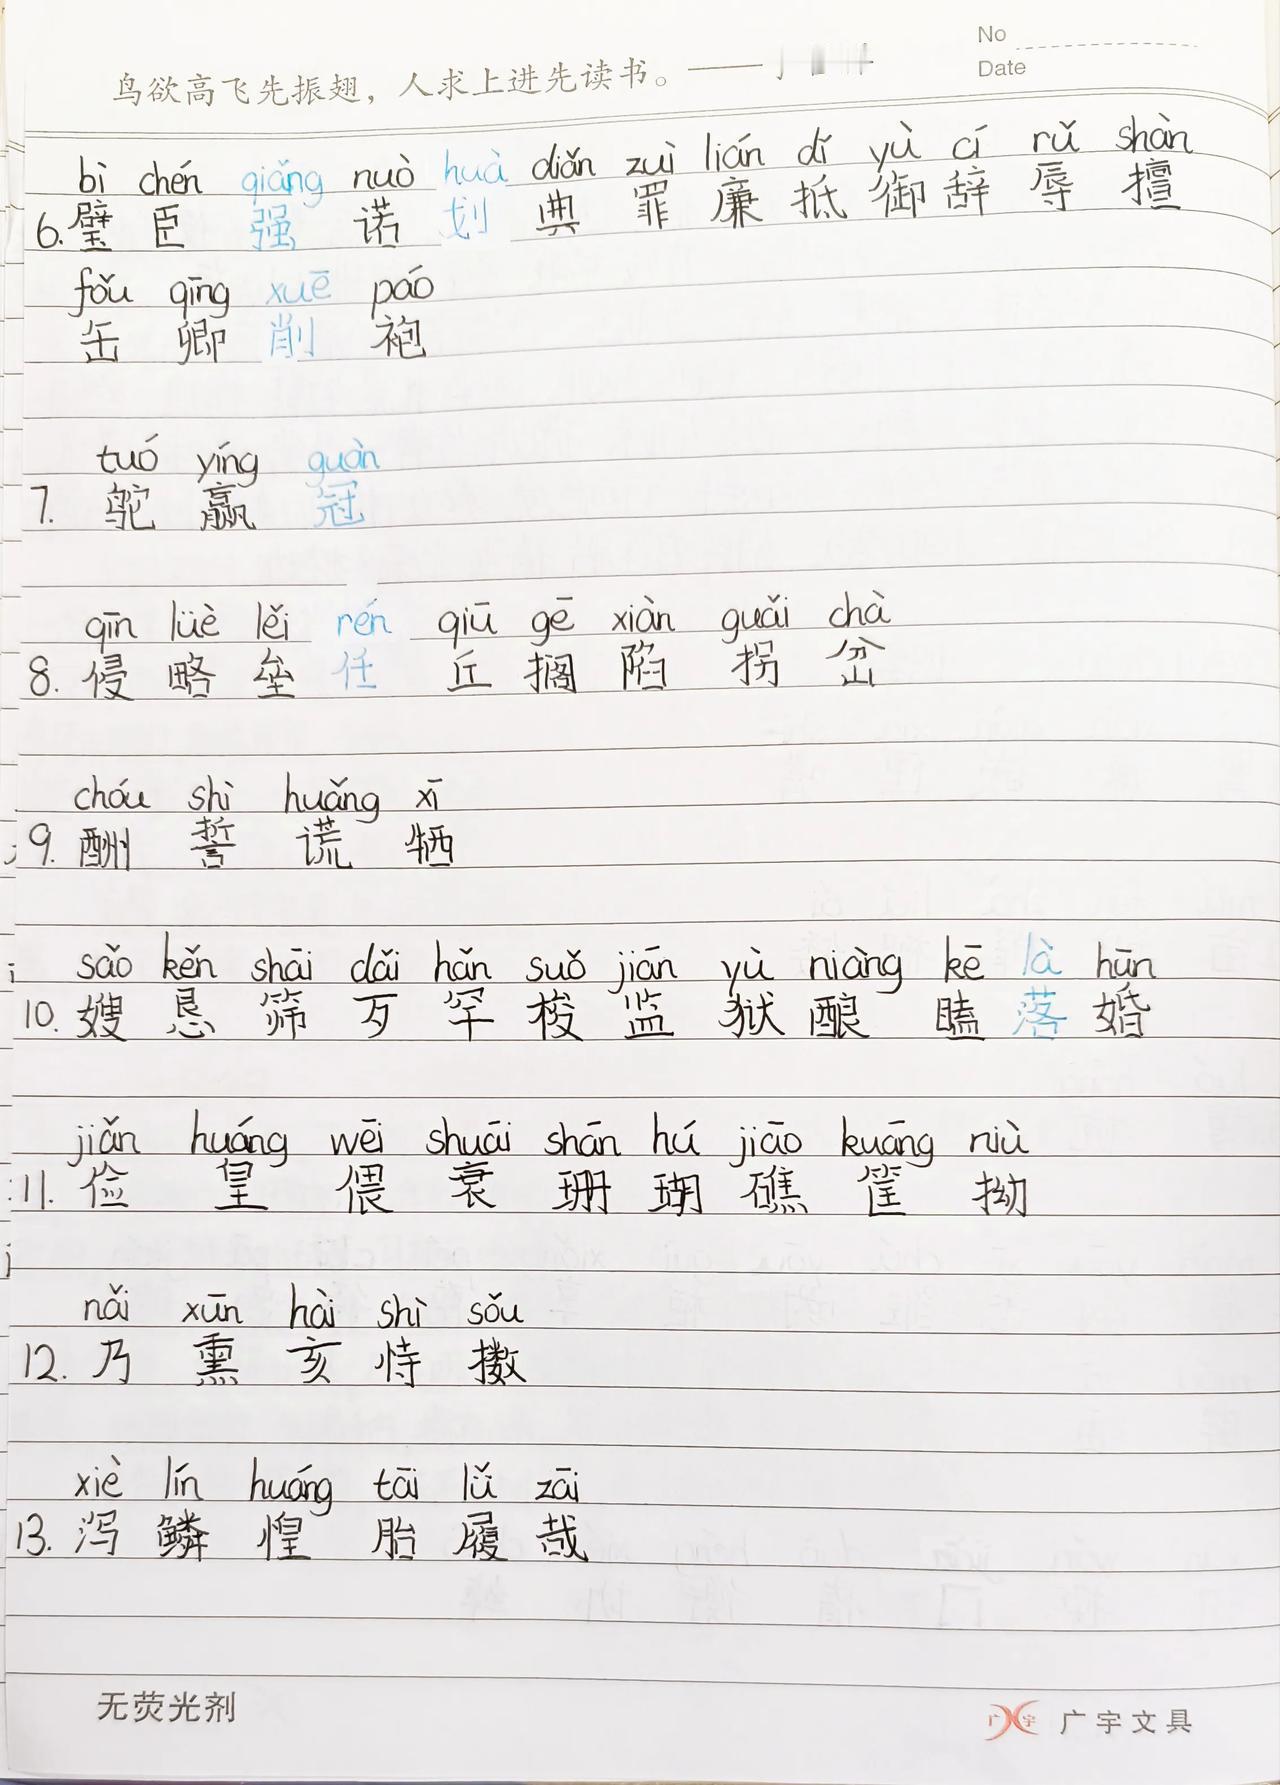 No
鸟欲高飞先振翅，人求上进先读书。——
Date
bì chén qiǎng nuò huà diǎn zuì lián dǐ yù cí rǔ shàn
6. 璧 臣 强 诺 划 典 罪 廉 抵 御 辞 辱 擅
fǒu qīng xuē páo
缶 卿 削 袍
tuó yíng guàn
7. 鸵 赢 冠
qīn lüè lěi rén qiū gē xiàn guǎi chà
8. 侵 略 垒 任 丘 搁 陷 拐 岔
chóu shì huǎng xī
9. 酬 誓 谎 牺
sǎo kěn shāi dǎi hǎn suǒ jiān yù niàng kē là hūn
10. 嫂 恳 筛 歹 罕 梭 监 狱 酿 瞌 落 婚
jiǎn huáng wēi shuāi shān hú jiāo kuāng niù
11. 俭 皇 偎 衰 珊 瑚 礁 筐 拗
nǎi xūn hài shì sǒu
12. 乃 熏 亥 恃 擞
xiè lín huáng tāi lǚ zāi
13. 泻 鳞 惶 胎 履 哉
无荧光剂
广宇文具